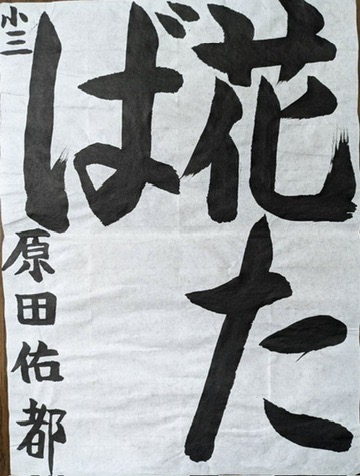 花た
ば
小三
原田佑都